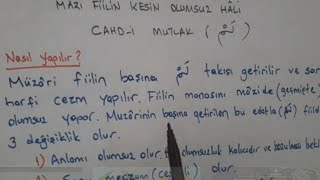 MAZI FİİLİN KESİN OLUMSUZ HÂLİ
CAHD-İ MUTLAK (لَمْ)
Nasıl Yapılır?
Müzâri fiilin başına لَمْ takısı getirilir ve son
harfi cezm yapılır. Fiilin manasını mâzide (geçmişte)
olumsuz yapar. Muzarinin başına getirilen bu edatla (لَمْ) fiilde
3 değişiklik olur.
1) Anlamı olumsuz olur. olumsuzluk kalıcıdır ve bozulması bekl
meczum (cezimli) olur.